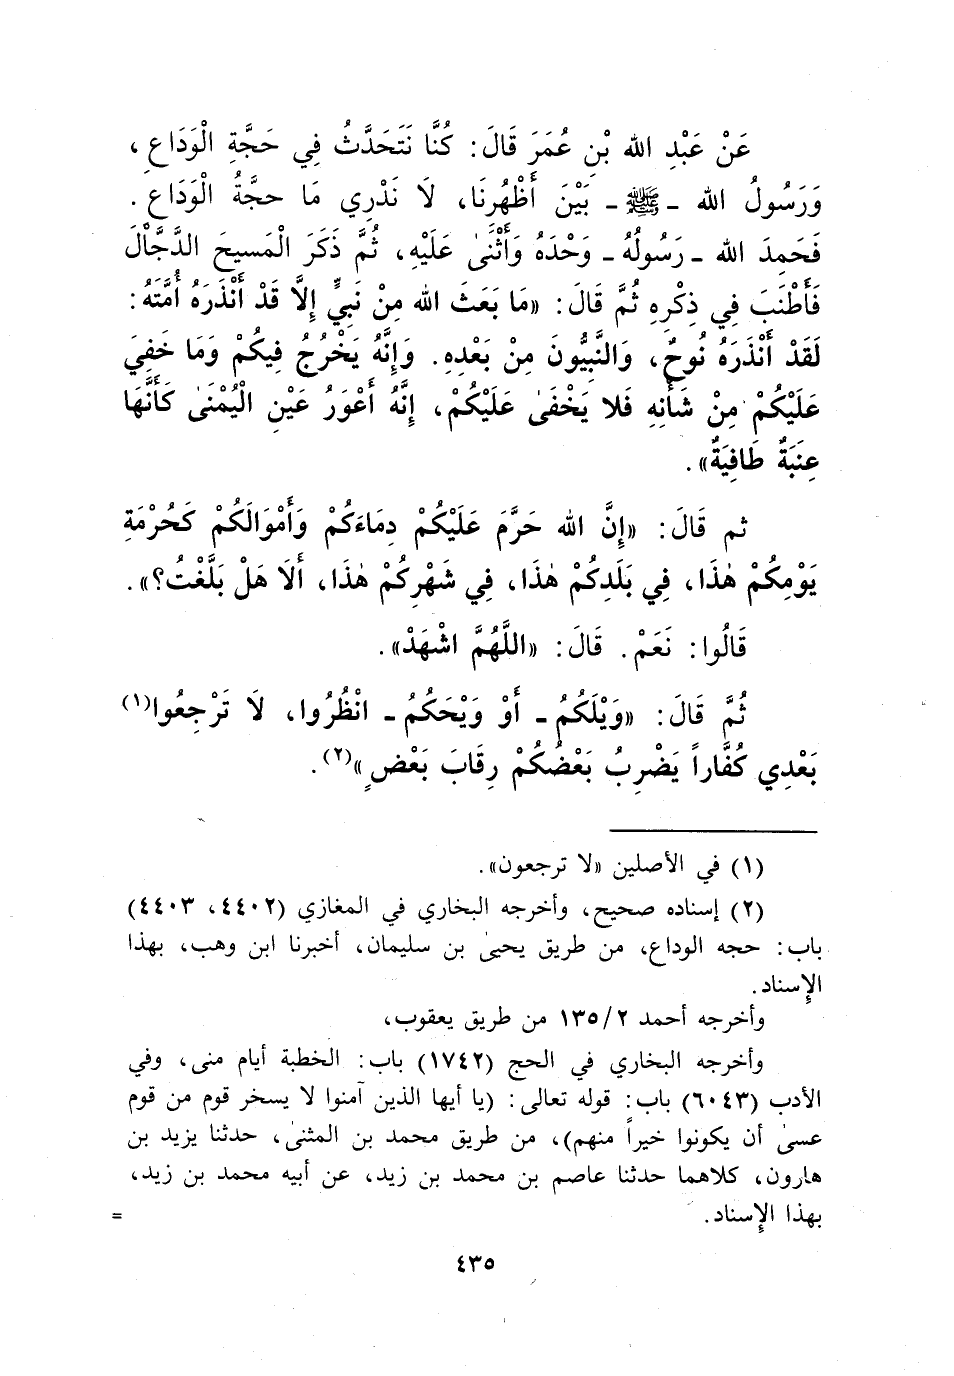 عَنْ عَبْدِ اللهِ بْنِ عُمَرَ قَالَ: كُنَّا نَتَحَدَّثُ فِي حَجَّةِ الْوَدَاعِ،
وَرَسُولُ اللهِ ـ ﷺ ـ بَيْنَ أَظْهُرِنَا، لَا نَدْرِي مَا حجَّةُ الْوَدَاعِ.
فَحَمِدَ اللهَ ـ رَسُولُهُ ـ وَحْدَهُ وَأَثْنَىٰ عَلَيْهِ، ثُمَّ ذَكَرَ الْمَسِيحَ الدَّجَّالَ
فَأَطْنَبَ فِي ذِكْرِهِ ثُمَّ قَالَ: «مَا بَعَثَ اللهُ مِنْ نَبِيٍّ إِلَّا قَدْ أَنْذَرَهُ أُمَّتَهُ:
لَقَدْ أَنْذَرَهُ نُوحٌ، وَالنَّبِيُّونَ مِنْ بَعْدِهِ. وَإِنَّهُ يَخْرُجُ فِيكُمْ وَمَا خَفِيَ
عَلَيْكُمْ مِنْ شَأْنِهِ فَلا يَخْفَىٰ عَلَيْكُمْ، إِنَّهُ أَعْوَرُ عَيْنِ الْيُمْنَىٰ كَأَنَّهَا
عِنَبَةٌ طَافِيَةٌ».
ثم قَالَ: «إِنَّ اللهَ حَرَّمَ عَلَيْكُمْ دِمَاءَكُمْ وَأَمْوَالَكُمْ كَحُرْمَةِ
يَوْمِكُمْ هٰذَا، فِي بَلَدِكُمْ هٰذَا، فِي شَهْرِكُمْ هٰذَا، أَلَا هَلْ بَلَّغْتُ؟».
قَالُوا: نَعَمْ. قَالَ: «اللَّهُمَّ اشْهَدْ».
ثُمَّ قَالَ: «وَيْلَكُمْ ـ أَوْ وَيْحَكُمْ ـ انْظُرُوا، لَا تَرْجِعُوا(١)
بَعْدِي كُفَّاراً يَضْرِبُ بَعْضُكُمْ رِقَابَ بَعْضٍ»(٢).
(١) في الأصلين «لا ترجعون».
(٢) إسناده صحيح، وأخرجه البخاري في المغازي (٤٤٠٢، ٤٤٠٣)
باب: حجه الوداع، من طريق يحيىٰ بن سليمان، أخبرنا ابن وهب، بهذا
الإسناد.
وأخرجه أحمد ٢/١٣٥ من طريق يعقوب،
وأخرجه البخاري في الحج (١٧٤٢) باب: الخطبة أيام منى، وفي
الأدب (٦٠٤٣) باب: قوله تعالى: (يا أيها الذين آمنوا لا يسخر قوم من قوم
عسىٰ أن يكونوا خيراً منهم)، من طريق محمد بن المثنىٰ، حدثنا يزيد بن
هارون، كلاهما حدثنا عاصم بن محمد بن زيد، عن أبيه محمد بن زيد،
بهذا الإسناد. =
٤٣٥